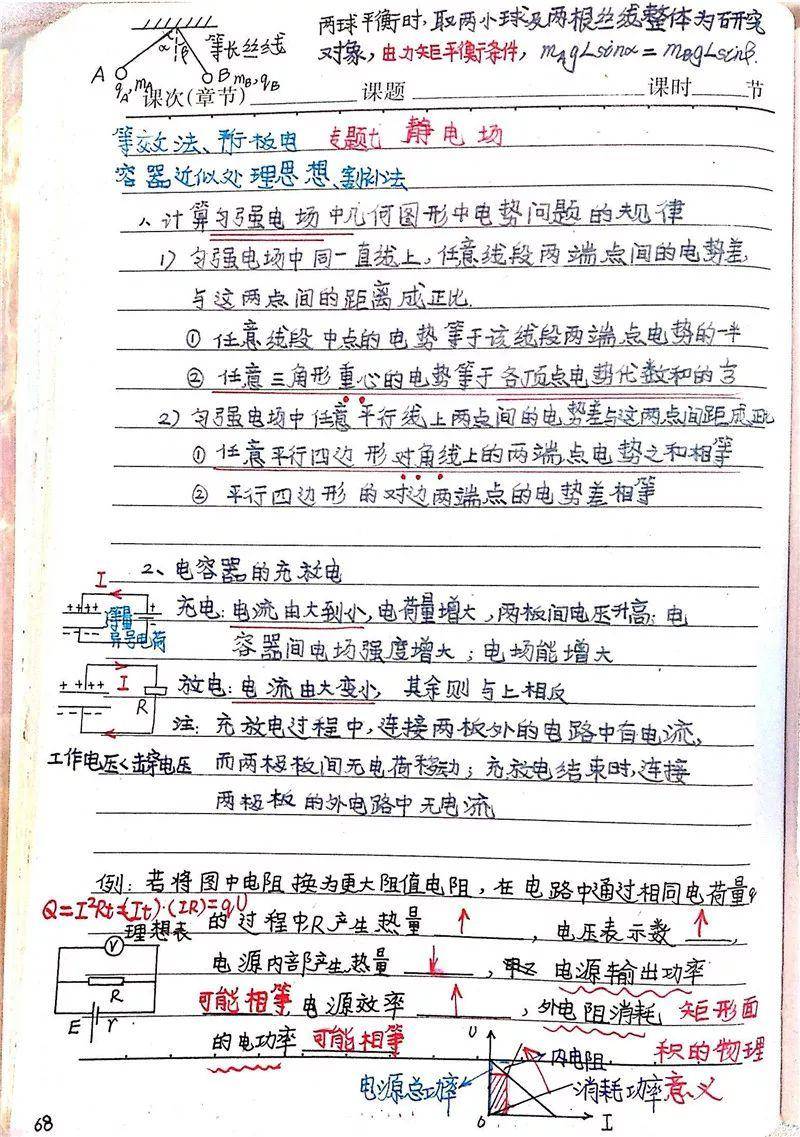 两球平衡时,取两小球及两根丝线整体为研究
对象,由力矩平衡条件,mAgLsinα=mBgLsinβ
α β 等长丝线
A B
qA,mA mB,qB
课次(章节) 课题 课时 节
等效法、平行板电 专题七 静电场
容器近似处理思想、割补法
1、计算匀强电场中几何图形中电势问题的规律
1)匀强电场中同一直线上,任意线段两端点间的电势差
与这两点间的距离成正比.
① 任意线段中点的电势等于该线段两端点电势的一半
② 任意三角形重心的电势等于各顶点电势代数和的1/3
2)匀强电场中任意平行线上两点间的电势差与这两点间距成正比
① 任意平行四边形对角线上的两端点电势之和相等
② 平行四边形的对边两端点的电势差相等
2、电容器的充放电
I
++ ++ +
等量
异号电荷
充电:电流由大到小,电荷量增大,两板间电压升高;电
容器间电场强度增大;电场能增大
++ ++ I R
放电:电流由大变小,其余则与上相反
注:充放电过程中,连接两板外的电路中有电流,
工作电压<击穿电压 而两极板间无电荷移动;充放电结束时,连接
两极板的外电路中无电流
例:若将图中电阻换为更大阻值电阻,在电路中通过相同电荷量q
Q=I²Rt=(It)·(IR)=qU
理想表 的过程中R产生热量 ↑ ,电压表示数 ↑ ,
V R E r
电源内部产生热量 ↓ , 电源输出功率
可能相等 电源效率 ↑ ,外电阻消耗 矩形面
的电功率 可能相等 积的物理
U 内电阻
电源总功率 消耗功率 意义
0 I
68